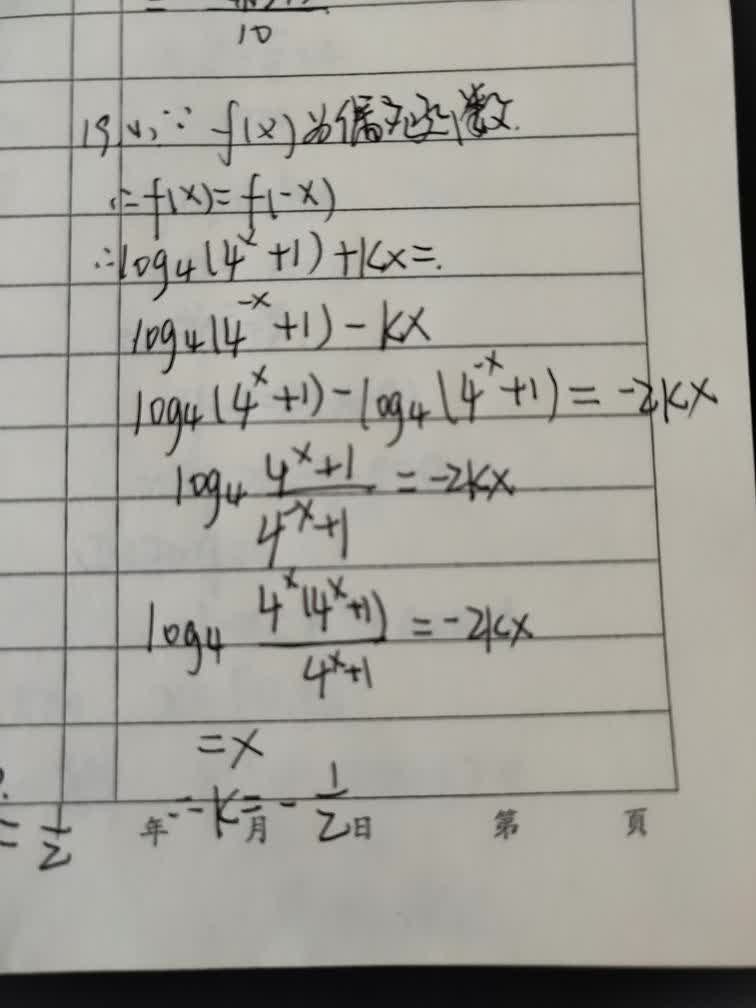 10
19.(1)∵ f(x)为偶函数.
∴f(x)=f(-x)
∴log₄(4ˣ+1)+kx=.
log₄(4⁻ˣ+1)-kx
log₄(4ˣ+1)-log₄(4⁻ˣ+1)=-2kx
log₄ (4ˣ+1)/(4⁻ˣ+1) =-2kx
log₄ 4ˣ(4ˣ+1)/(4ˣ+1) =-2kx
=x
∴k=-1/2
= 1/2
年 月 日 第 頁